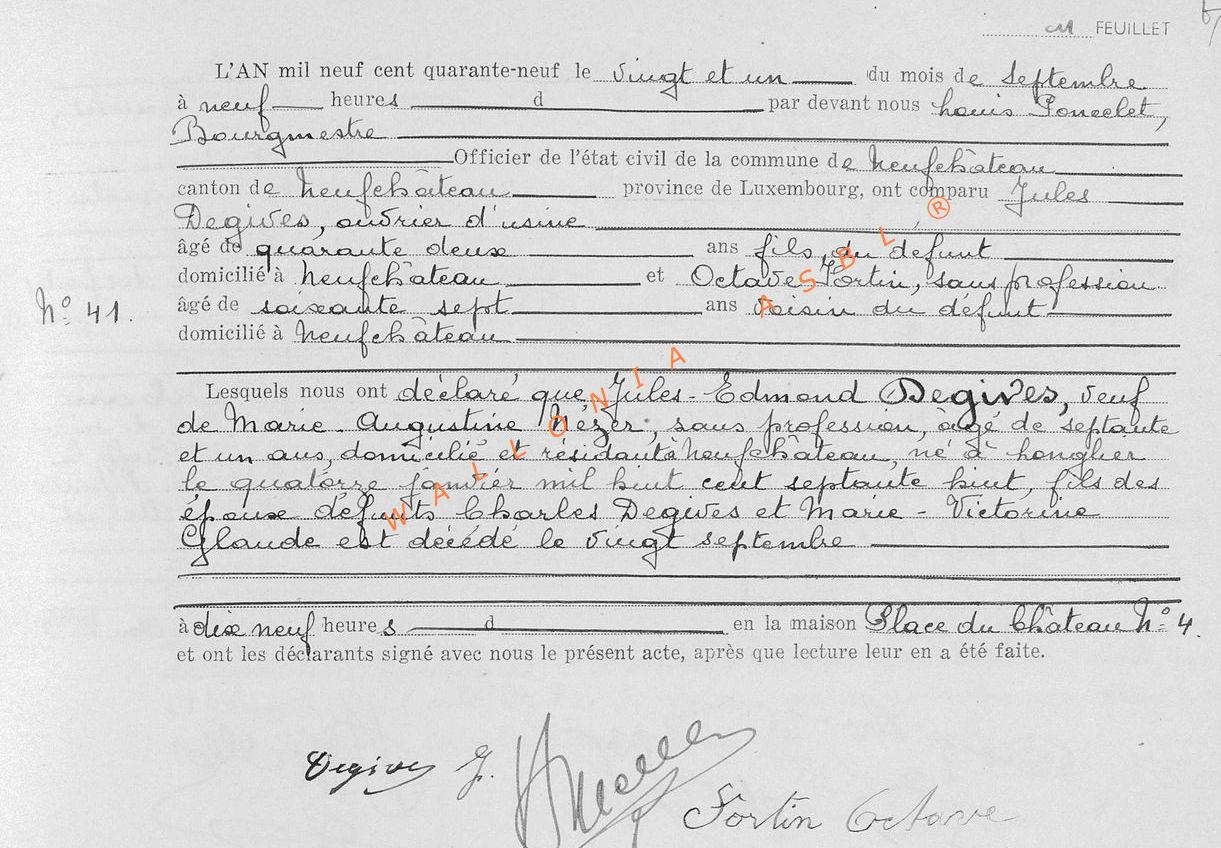 FEUILLET
L'AN mil neuf cent quarante-neuf le vingt et un du mois de Septembre
à neuf heures d par devant nous Louis Poncelet,
Bourgmestre
Officier de l'état civil de la commune de Neufchâteau
canton de Neufchâteau province de Luxembourg, ont comparu Jules
Degives, ouvrier d'usine
âgé de quarante deux ans fils du défunt
domicilié à Neufchâteau et Octave Fortin, sans profession
N° 41.
âgé de soixante sept ans voisin du défunt
domicilié à Neufchâteau
Lesquels nous ont déclaré que Jules-Edmond Degives, veuf
de Marie-Augustine Nézer, sans profession, âgé de septante
et un ans, domicilié et résidant à Neufchâteau, né à Longlier
le quatorze janvier mil huit cent septante huit, fils des
époux défunts Charles Degives et Marie-Victorine
Glaude est décédé le vingt septembre
à dix neuf heures d en la maison Place du Château N° 4.
et ont les déclarants signé avec nous le présent acte, après que lecture leur en a été faite.
Degives J.
Fortin Octave
WALLONIA ASBL ®